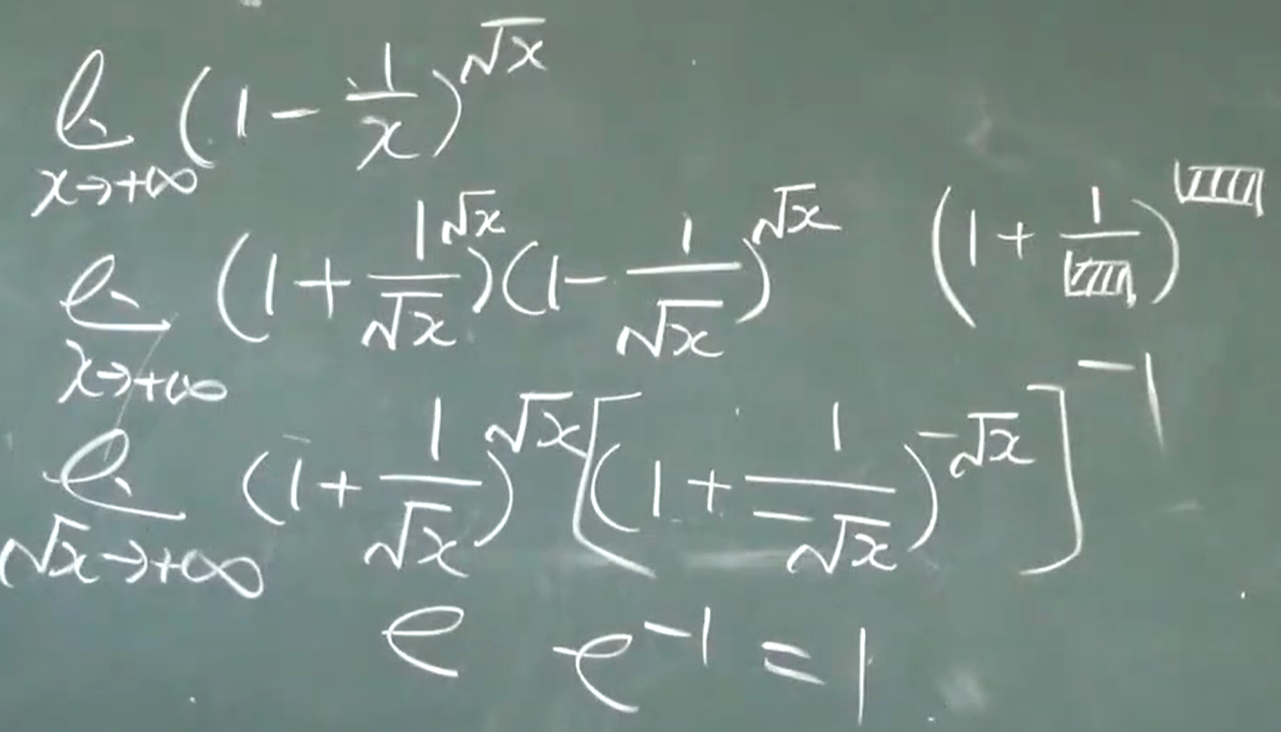 lim x→+∞ (1 - 1/x)^√x
lim x→+∞ (1 + 1/√x)^√x (1 - 1/√x)^√x (1 + 1/▨)^▨
lim √x→+∞ (1 + 1/√x)^√x [(1 + 1/-√x)^-√x]^-1
e e^-1 = 1